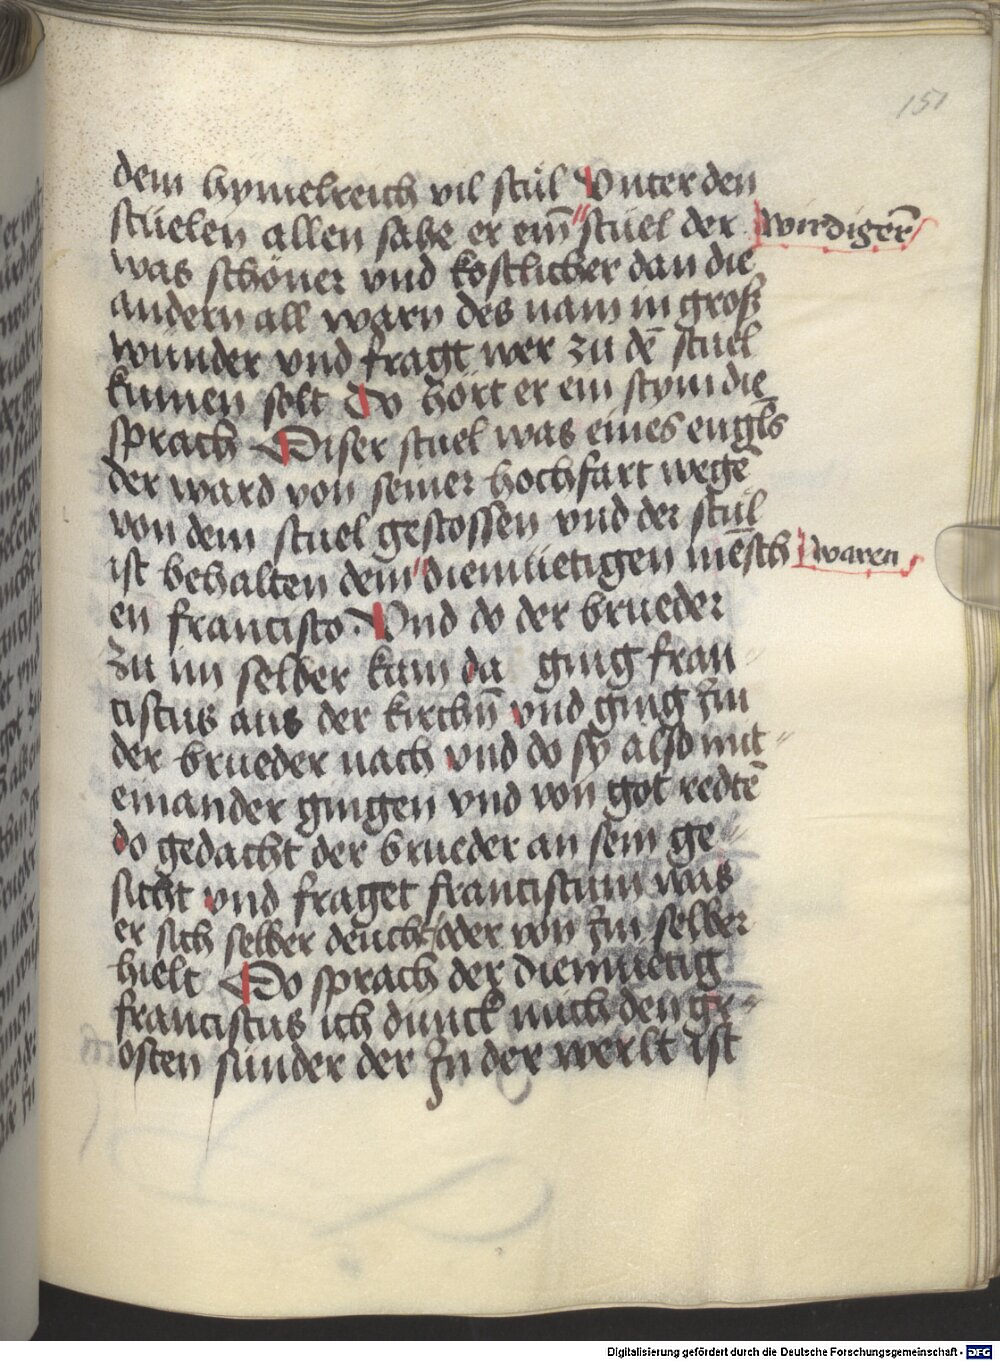 151
dem hymelreich vil stuͤl Vnter den
stuelen allen sahe er ein̄ "stuel der wirdigerē
was schöner vnd kostlicher dan die
andern all warn des nam in groß
wunder vnd fragt wer zu dē stuel
kumen solt Do hort er ein stym die
sprach Diser stuel was eines engls̄
der ward von seiner hochfart wegē
von dem stuel gestossen vnd der stuͤl
ist behalten dem "diemuetigen mēsch waren
en francisco. Vnd do der brueder
zu im selber kam da ging fran
ciscus aus der kirchn̄ vnd ging Jm
der brueder nach vnd do sy also mit "
einander gingen vnd von got redtē
do gedacht der brueder an sein ge "
sicht vnd fraget franciscum was
er sich selber deucht / oder von Jm selber
hielt Do sprach der diemuetig
franciscus ich dunck mich den gr "
osten sunder der Jn der werlt ist
Digitalisierung gefördert durch die Deutsche Forschungsgemeinschaft - DFG